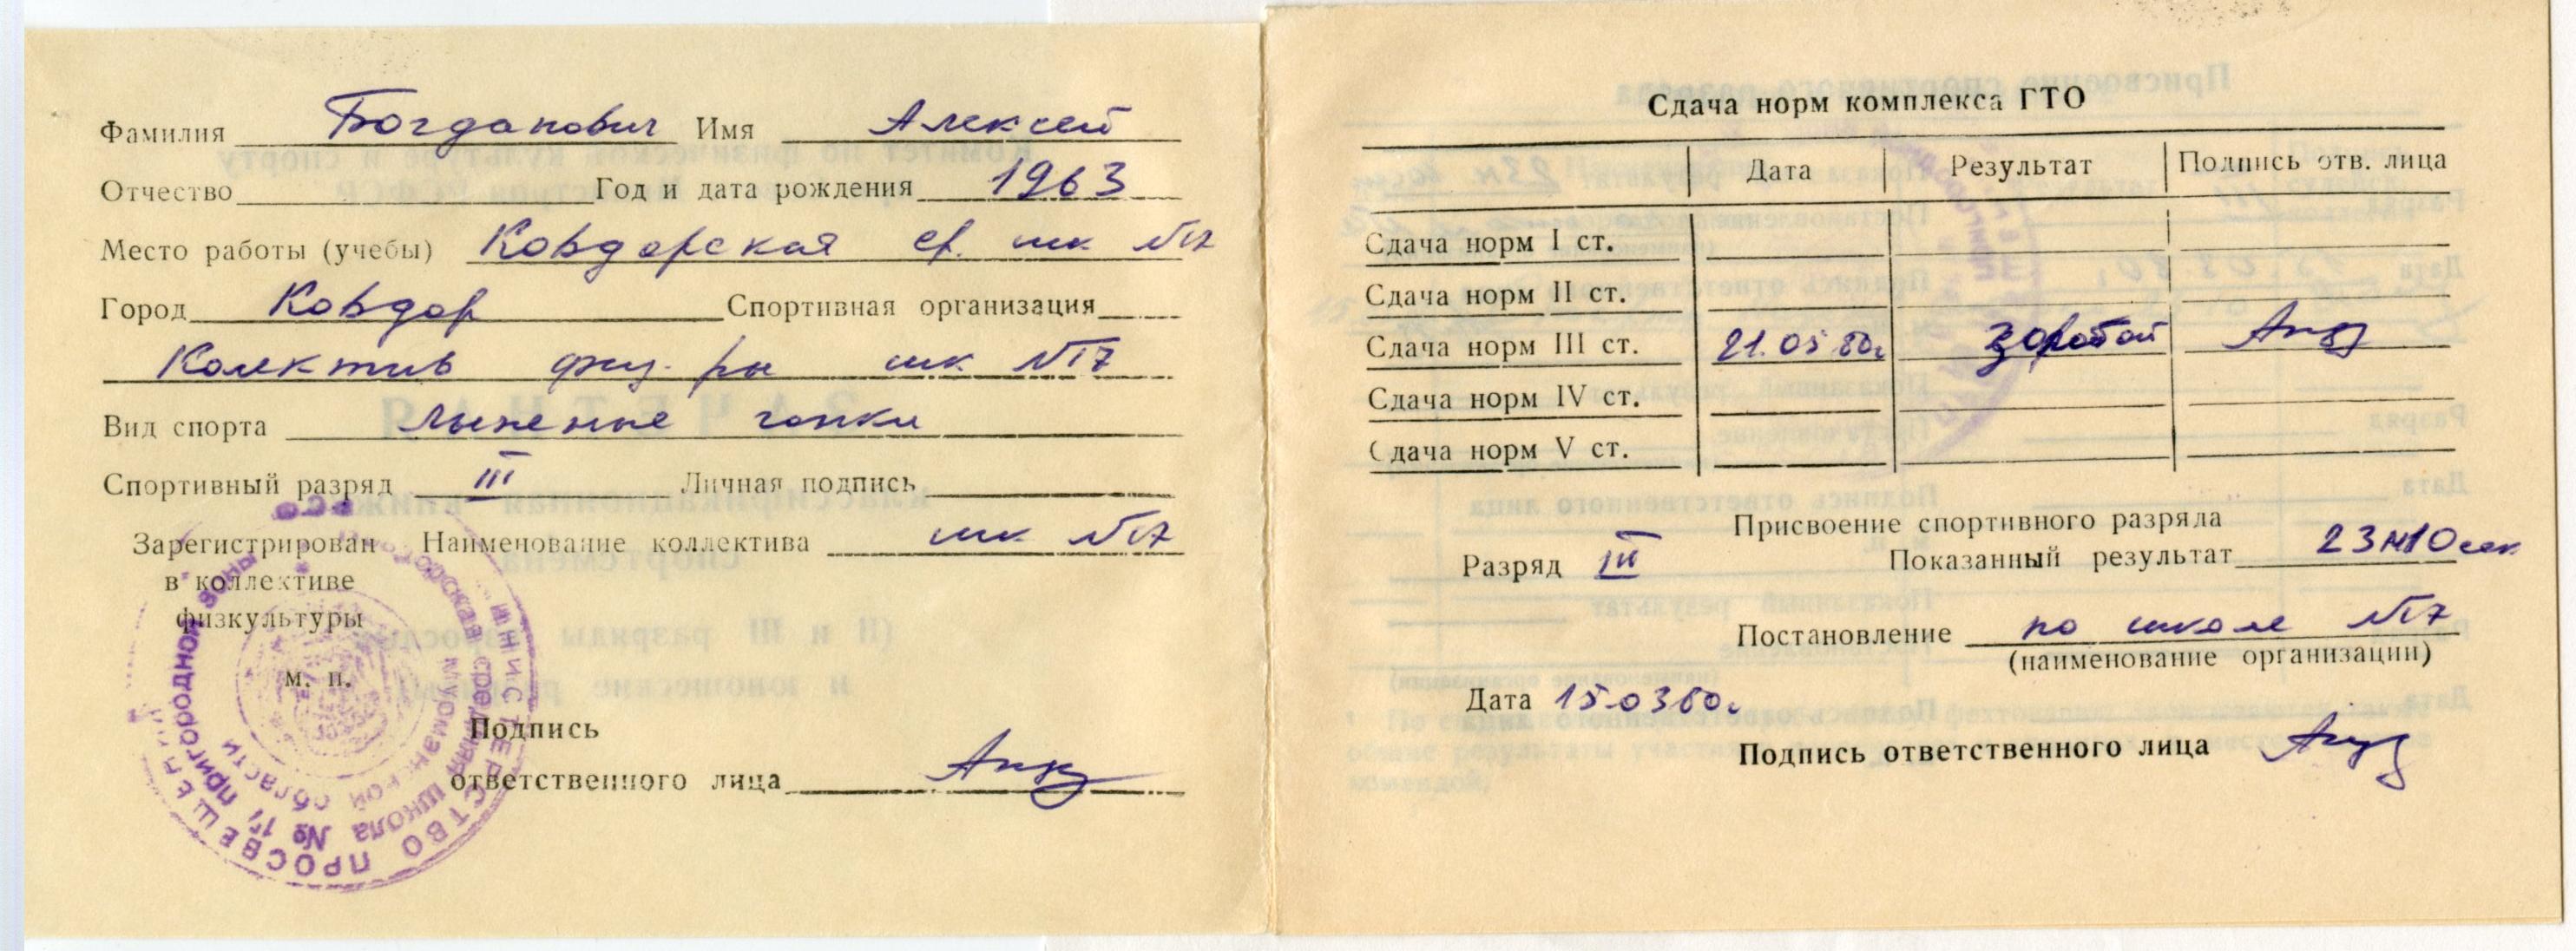 Фамилия Богданович Имя Алексей
Отчество Год и дата рождения 1963
Место работы (учебы) Ковдорская ср. шк №17
Город Ковдор Спортивная организация
Колектив физ-ры шк №17
Вид спорта лыжные гонки
Спортивный разряд III Личная подпись
Зарегистрирован Наименование коллектива шк №17
в коллективе
физкультуры
м. п.
Подпись
ответственного лица
МИНИСТЕРСТВО ПРОСВЕЩЕНИЯ
средняя школа № 17 пригородной зоны
Мурманской области
Сдача норм комплекса ГТО
Дата Результат Подпись отв. лица
Сдача норм I ст.
Сдача норм II ст.
Сдача норм III ст. 21.05.80г
Сдача норм IV ст.
Сдача норм V ст.
Присвоение спортивного разряда
Разряд III Показанный результат 23м10сек
Постановление по школе №17
(наименование организации)
Дата 15.03.80г
Подпись ответственного лица